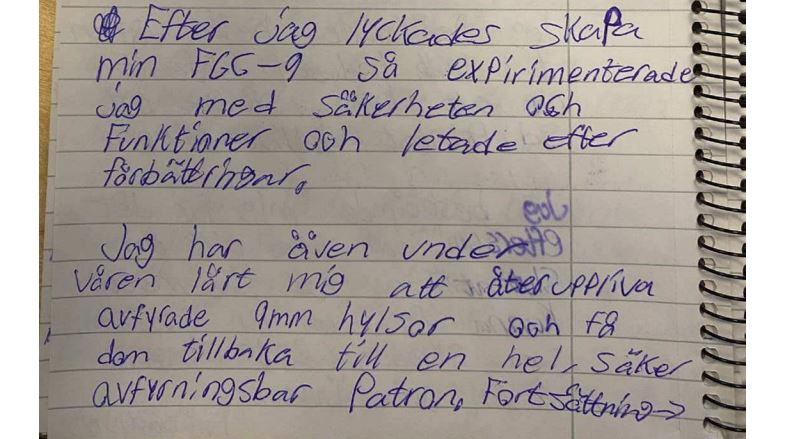 Efter jag lyckades skapa
min FGC-9 så expirimenterade
jag med säkerheten och
Funktioner och letade efter
förbättringar.
Jag har även under
våren lärt mig att återuppliva
avfyrade 9mm hylsor och få
dom tillbaka till en hel, säker
avfyrningsbar Patron. Fortsättning ->